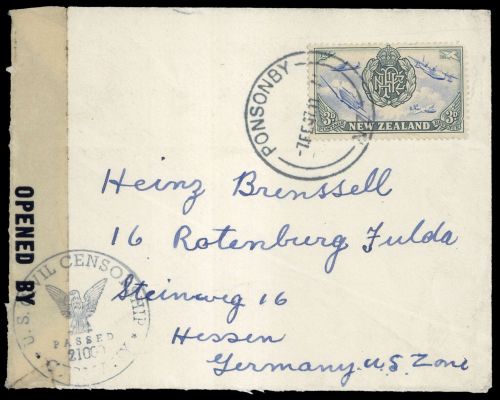 PONSONBY
N.Z.
NEW ZEALAND
3D 3D
Heinz Brenssell
16 Rotenburg Fulda
Steinweg 16
Hessen
Germany U.S Zone
OPENED BY
U.S. CIVIL CENSORSHIP
PASSED